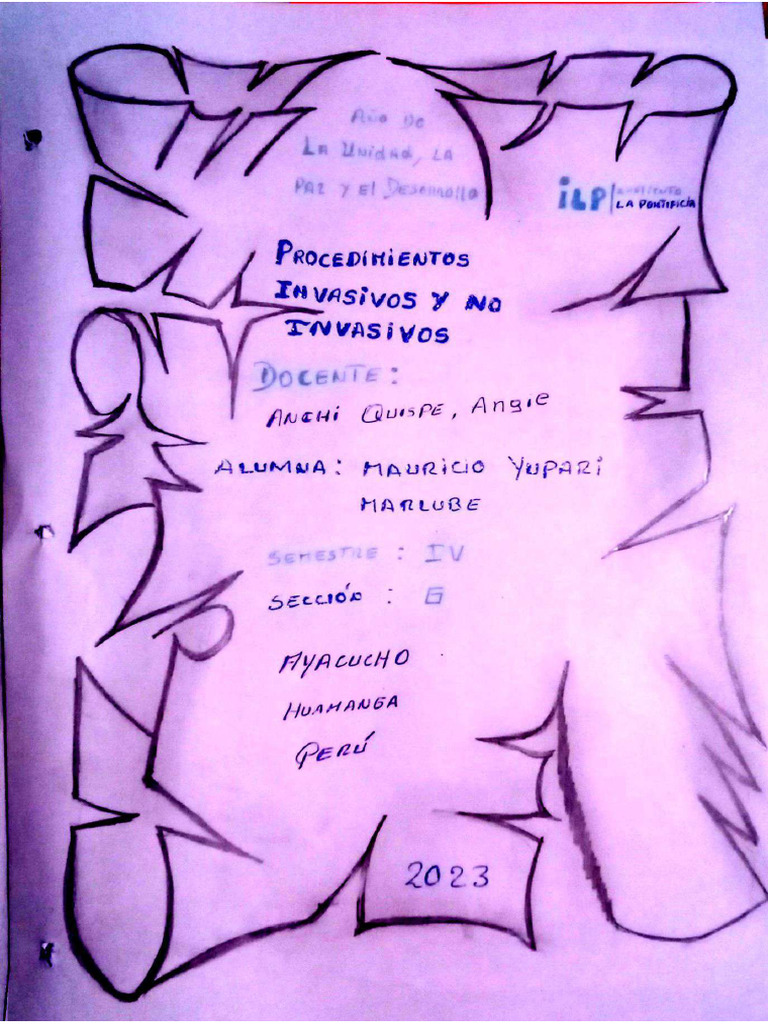 Año De
La Unidad, La
Paz y el Desarrollo
iLP | Instituto
La Pontificia
Procedimientos
Invasivos y no
Invasivos
Docente:
Anchi Quispe, Angie
Alumna: Mauricio Yupari
Marlube
Semestre : IV
Sección : G
Ayacucho
Huamanga
Perú
2023